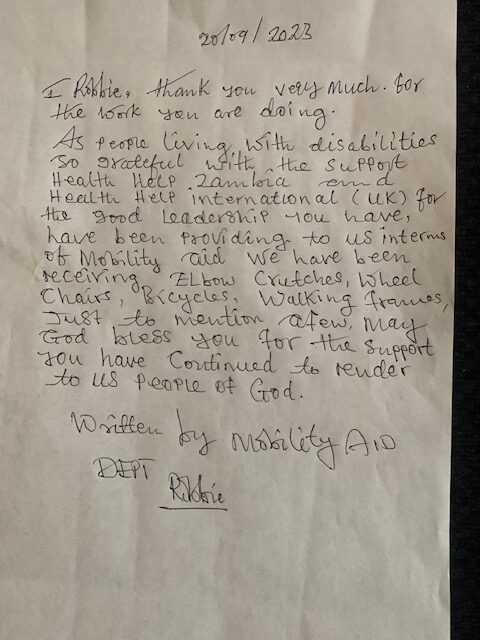 20/09/2023
I Robbie, thank you very much. for
the work you are doing.
As people living with disabilities
so grateful with the support
Health Help Zambia and
Health Help international (UK) for
the good leadership you have,
have been providing to us interms
of Mobility aid we have been
receiving Elbow Crutches, Wheel
Chairs, Bicycles, Walking frames,
Just to mention afew, May
God bless you for the support
you have Continued to render
to us people of God.
Written by Mobility AID
DEPT
Robbie